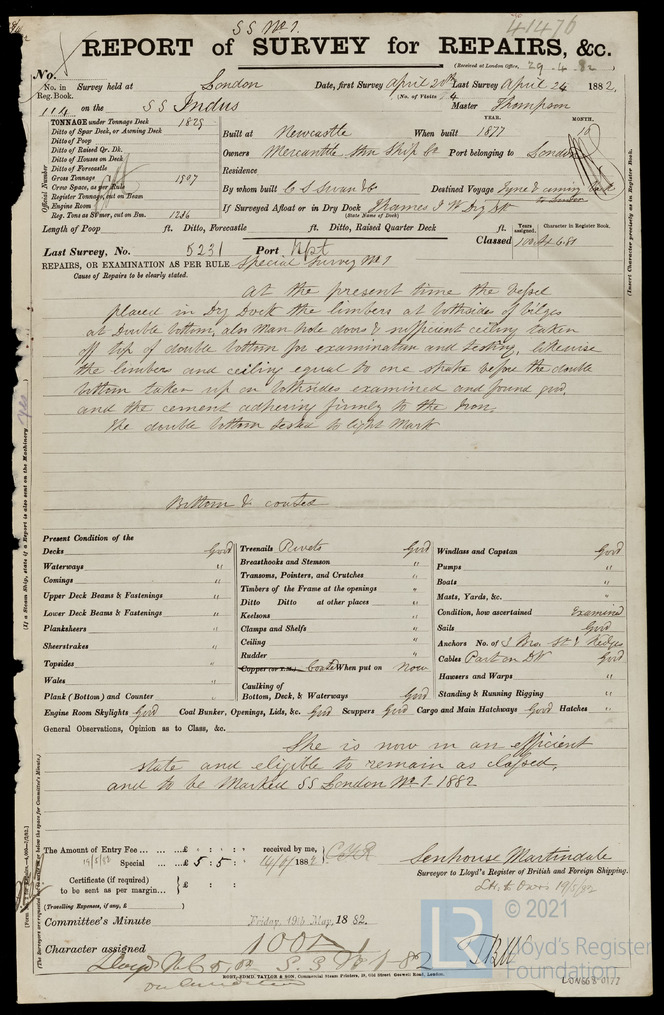 SS No 1.
41476
REPORT of SURVEY for REPAIRS, &c.
(Received at London Office, 29.4.82
No.
No. in Reg. Book. Survey held at London Date, first Survey April 20th Last Survey April 24 1882.
(No. of Visits 4
114 on the SS Indus Master Thompson
TONNAGE under Tonnage Deck 1829
Ditto of Spar Deck, or Awning Deck
Ditto of Poop
Ditto of Raised Qr. Dk.
Ditto of Houses on Deck
Ditto of Forecastle
Gross Tonnage
Crew Space, as per Rule
Register Tonnage, cut on Beam
Engine Room
Reg. Tons as St'mer, cut on Bm. 1236
YEAR. MONTH.
Built at Newcastle When built 1877 10
Owners Mercantile Stm Ship Co Port belonging to London
Residence
By whom built C S Swan & Co Destined Voyage Tyne & coming back to London
If Surveyed Afloat or in Dry Dock Thames I W Dry Dk
(State Name of Dock)
Length of Poop ft. Ditto, Forecastle ft. Ditto, Raised Quarter Deck ft.
Years assigned. Character in Register Book.
Classed
Last Survey, No. 5231 Port Npt
REPAIRS, OR EXAMINATION AS PER RULE Special Survey No 1
Cause of Repairs to be clearly stated.
At the present time the vessel
placed in Dry Dock the limbers at bothside of bilges
at Double bottom, also Man hole doors & sufficient ceiling taken
off top of double bottom for examination and testing, likewise
the limbers and ceiling equal to one strake before the double
bottom taken up on bothsides examined and found good,
and the cement adhering firmly to the Iron.
The double bottom tested to light Mark
Bottom & coated
Present Condition of the
Decks Good
Waterways "
Comings "
Upper Deck Beams & Fastenings "
Lower Deck Beams & Fastenings "
Planksheers "
Sheerstrakes "
Topsides "
Wales "
Plank (Bottom) and Counter "
Treenails Rivets Good
Breasthooks and Stemson "
Transoms, Pointers, and Crutches "
Timbers of the Frame at the openings "
Ditto Ditto at other places "
Keelsons "
Clamps and Shelfs "
Ceiling "
Rudder "
Copper (or Y.M.) Coated When put on Now
Caulking of
Bottom, Deck, & Waterways Good
Windlass and Capstan Good
Pumps "
Boats "
Masts, Yards, &c. "
Condition, how ascertained Examined
Sails Good
Anchors No. of 3 Bro. St & Kedges
Cables Part on DK Good
Hawsers and Warps "
Standing & Running Rigging "
Engine Room Skylights Good Coal Bunker, Openings, Lids, &c. Good Scuppers Good Cargo and Main Hatchways Good Hatches "
General Observations, Opinion as to Class, &c.
She is now in an efficient
state and eligible to remain as classed,
and to be Marked SS London No 1-1882
The Amount of Entry Fee £ : : received by me,
19/5/82 Special £ 5 : 5 :
Certificate (if required) to be sent as per margin £ :
(Travelling Expenses, if any, £ )
Senhouse Martindale
Surveyor to Lloyd's Register of British and Foreign Shipping.
Committee's Minute Friday, 19th May, 1882.
Character assigned 100A1
ROBT. EDMD. TAYLOR & SON, Commercial Steam Printers, 19, Old Street Goswell Road, London.
LR
© 2021
Lloyd's Register
Foundation
LON668-0177
Official Number
(Insert Character precisely as in Register Book.
(If a Steam Ship, state if a Report is also sent on the Machinery